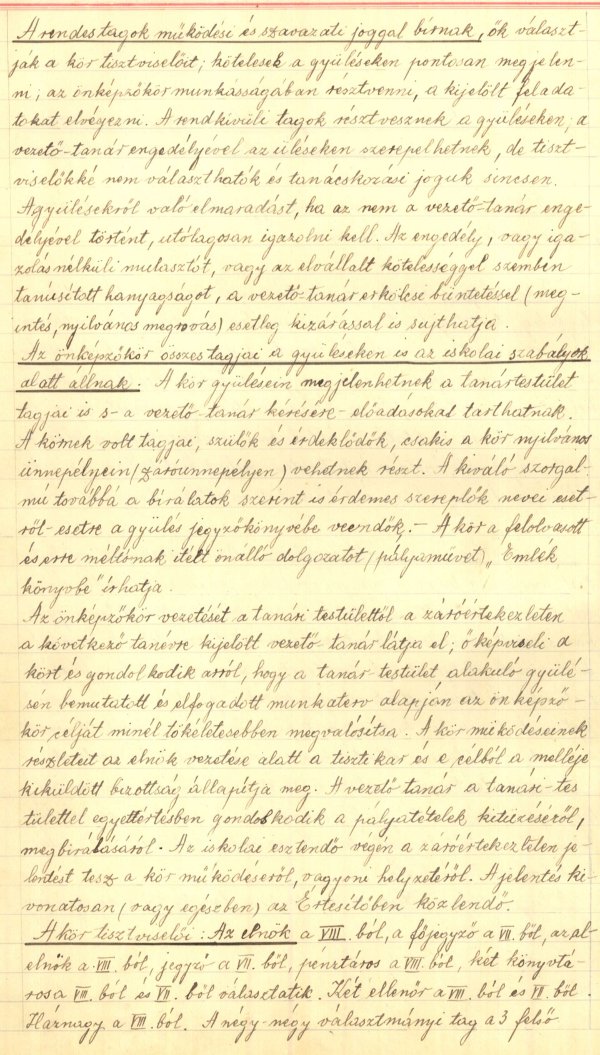 A rendes tagok működési és szavazati joggal bírnak, ők választ-
ják a kör tisztviselőit; kötelesek a gyüléseken pontosan megjelen-
ni; az önképzőkör munkásságában résztvenni, a kijelölt felada-
tokat elvégezni. A rendkivüli tagok résztvesznek a gyüléseken; a
vezető-tanár engedélyével az üléseken szerepelhetnek, de tiszt-
viselőkké nem választhatók és tanácskozási joguk sincsen.
A gyülésekről való elmaradást, ha az nem a vezető-tanár enge-
délyével történt, utólagosan igazolni kell. Az engedély, vagy iga-
zolás nélküli mulasztót, vagy az elvállalt kötelességgel szemben
tanúsított hanyagságot, a vezető-tanár erkölcsi büntetéssel (meg-
intés, nyilvános megrovás) esetleg kizárással is sujthatja.
Az önképzőkör összes tagjai a gyüléseken is az iskolai szabályok
alatt állnak. A kör gyülésein megjelenhetnek a tanártestület
tagjai is s-a vezető-tanár kérésére-előadásokat tarthatnak.
A körnek volt tagjai, szülők és érdeklődők, csakis a kör nyilvános
ünnepélyein (záróünnepélyen) vehetnek részt. A kiváló szorgal-
mú továbbá a birálatok szerint is érdemes szereplők nevei eset-
ről-esetre a gyülés jegyzőkönyvébe veendők. – A kör a felolvasott
és erre méltónak itélt önálló dolgozatot (pályaművet) „Emlék
könyvbe" irhatja.
Az önképzőkör vezetését a tanári testülettől a záróértekezleten
a következő tanévre kijelölt vezető-tanár látja el; ő képviseli a
kört és gondolkodik arról, hogy a tanár-testület alakuló gyülé-
sén bemutatott és elfogadott munkaterv alapján az önképző-
kör célját minél tökéletesebben megvalósítsa. A kör működéseinek
részleteit az elnök vezetése alatt a tisztikar és e célból a melléje
kiküldött bizottság állapítja meg. A vezető tanár a tanári-tes
tülettel egyetértésben gondoskodik a pályatételek kitüzéséről,
megbirálásáról. Az iskolai esztendő végén a záróértekezleten je-
lentést tesz a kör működéséről, vagyoni helyzetéről. A jelentés ki-
vonatosan (vagy egészben) az Értesítőben közlendő.
A kör tisztviselői: Az elnök a VIII. ból, a főjegyző a VII. ből, az al-
elnök a VIII. ból, jegyző a VII. ből, pénztáros a VIII. ból, két könyvtá-
rosa VIII. ból és VII. ből választatik. Két ellenőr a VIII. ból és VII. ből.
Háznagy a VIII. ból. A négy-négy választmányi tag a 3 felső